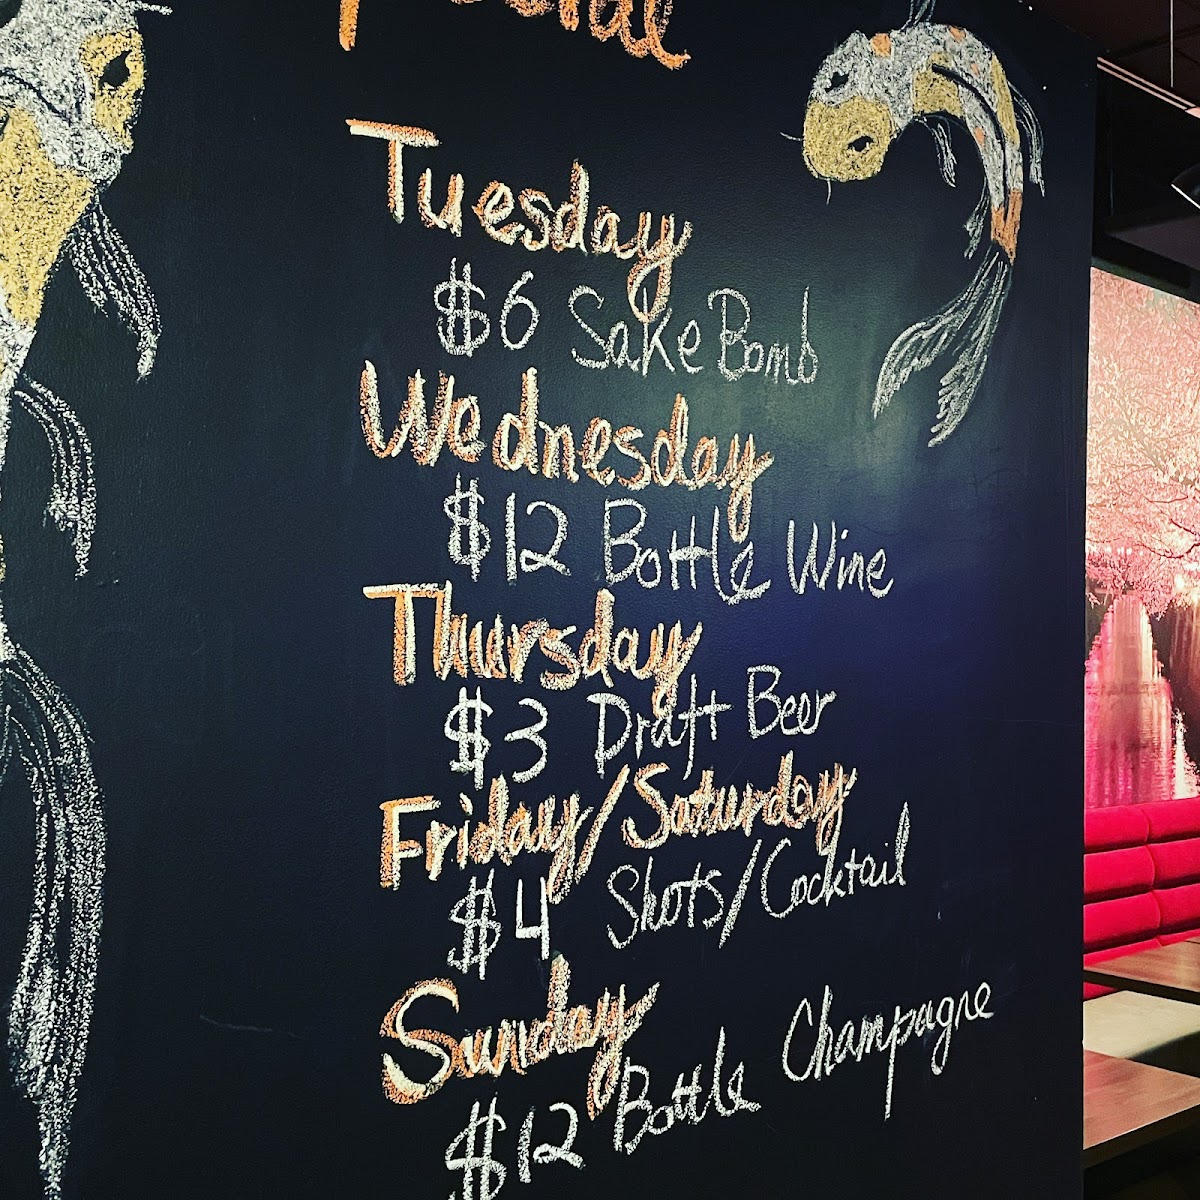 Tuesday
$6 Sake Bomb
Wednesday
$12 Bottle Wine
Thursday
$3 Draft Beer
Friday/Saturday
$4 Shots/Cocktail
Sunday
$12 Bottle Champagne